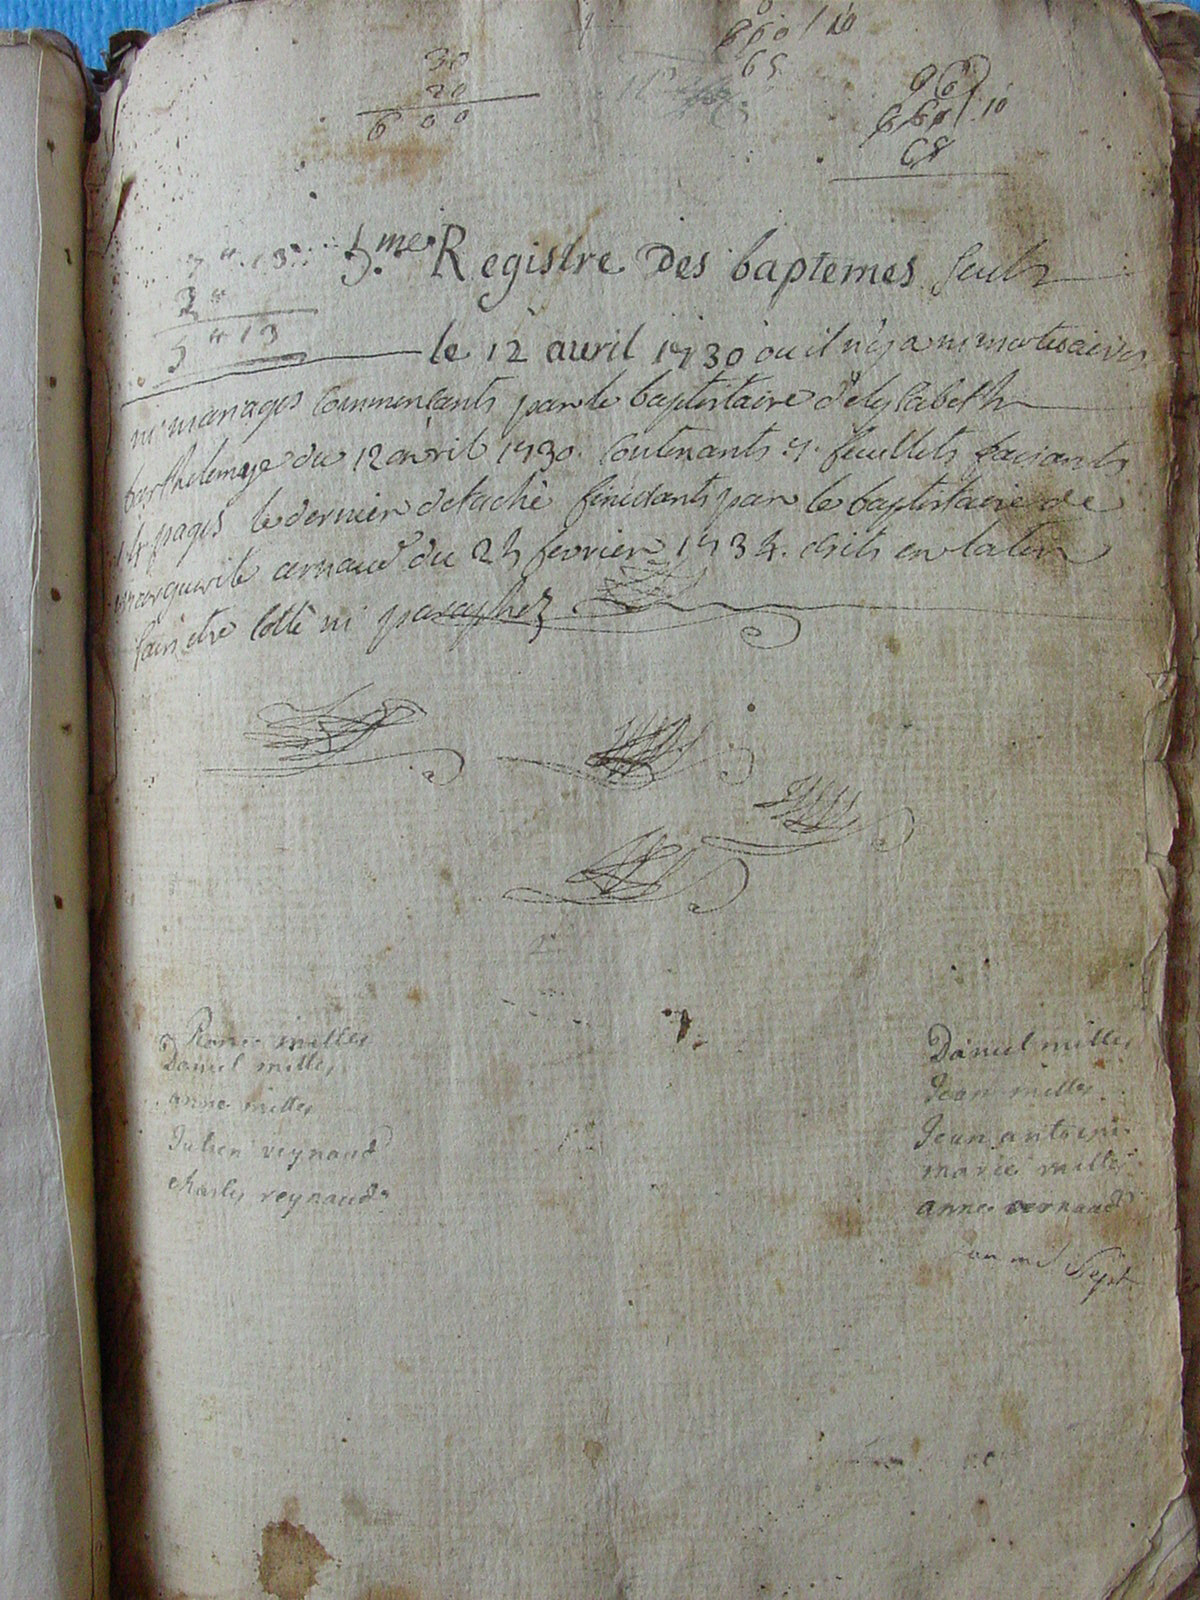 30
20
600
660 / 10
65
66
660 / 10
65
5.me Registre Des baptemes seuls
7 " 13 "
2 "
5 " 13
le 12 avril 1730 ou il n'y a ni mortuaires
ni mariages commencants par le baptistaire d'elysabeth
barthelemye du 12 avril 1730. contenants 7. feuillets faisants
14 pages le dernier detaché finissants par le baptistaire de
marguerite arnaud du 25 fevrier 1734. ecrits en latin
sans etre cotté ni paraphez
milles
Daniel milles
anne milles
Julien reynaud
charles reynaud
Daniel milles
Jean milles
Jean antoine
marie milles
anne arnaud
Sept